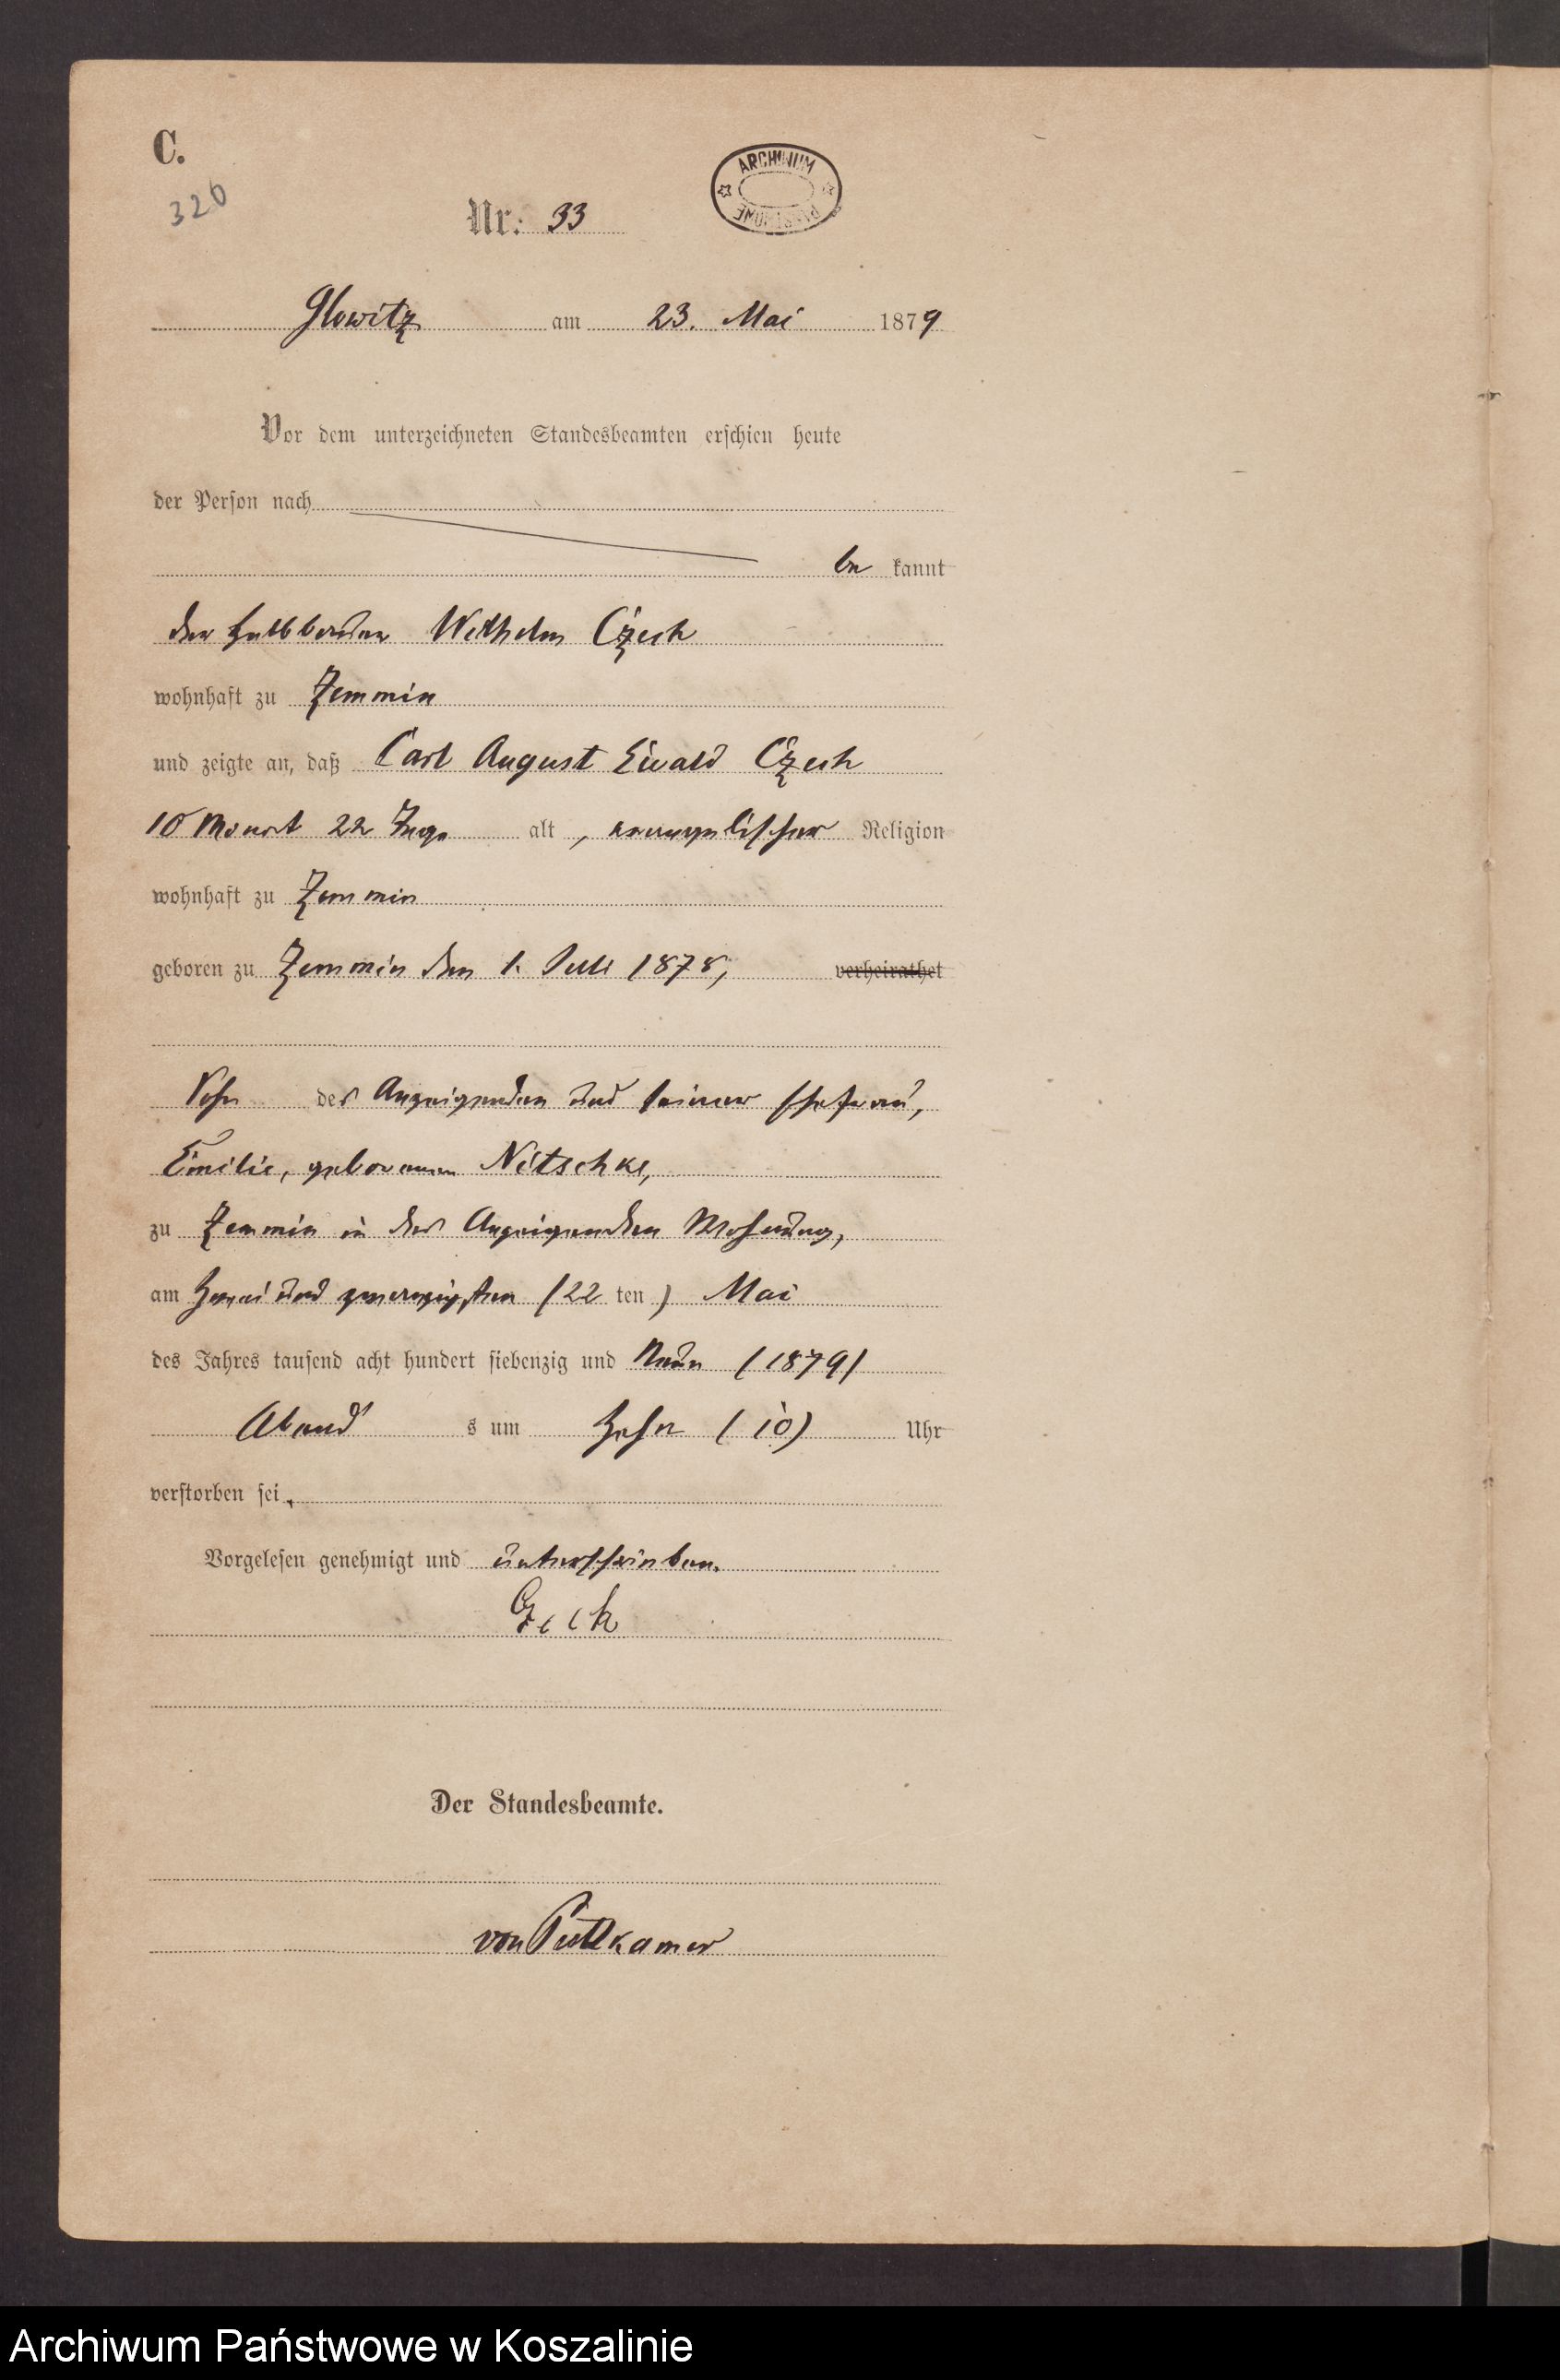 C.
320
Nr. 33
ARCHIWUM PAŃSTWOWE
Glowitz am 23. Mai 1879
Vor dem unterzeichneten Standesbeamten erschien heute
der Person nach
be kannt
der Halbbauer Wilhelm Czech
wohnhaft zu Zemmin
und zeigte an, daß Carl August Ewald Czech
10 Monat 22 Tage alt, evangelischer Religion
wohnhaft zu Zemmin
geboren zu Zemmin den 1. Juli 1878, verheirathet
Sohn des Anzeigenden und seiner Ehefrau,
Emilie, geborenen Nitschke,
zu Zemmin in des Anzeigenden Wohnung,
am Zwei und zwanzigsten (22 ten) Mai
des Jahres tausend acht hundert siebenzig und Neun (1879)
Abend s um Zehn (10) Uhr
verstorben sei,
Vorgelesen genehmigt und unterschrieben.
Czech
Der Standesbeamte.
von Puttkamer
Archiwum Państwowe w Koszalinie